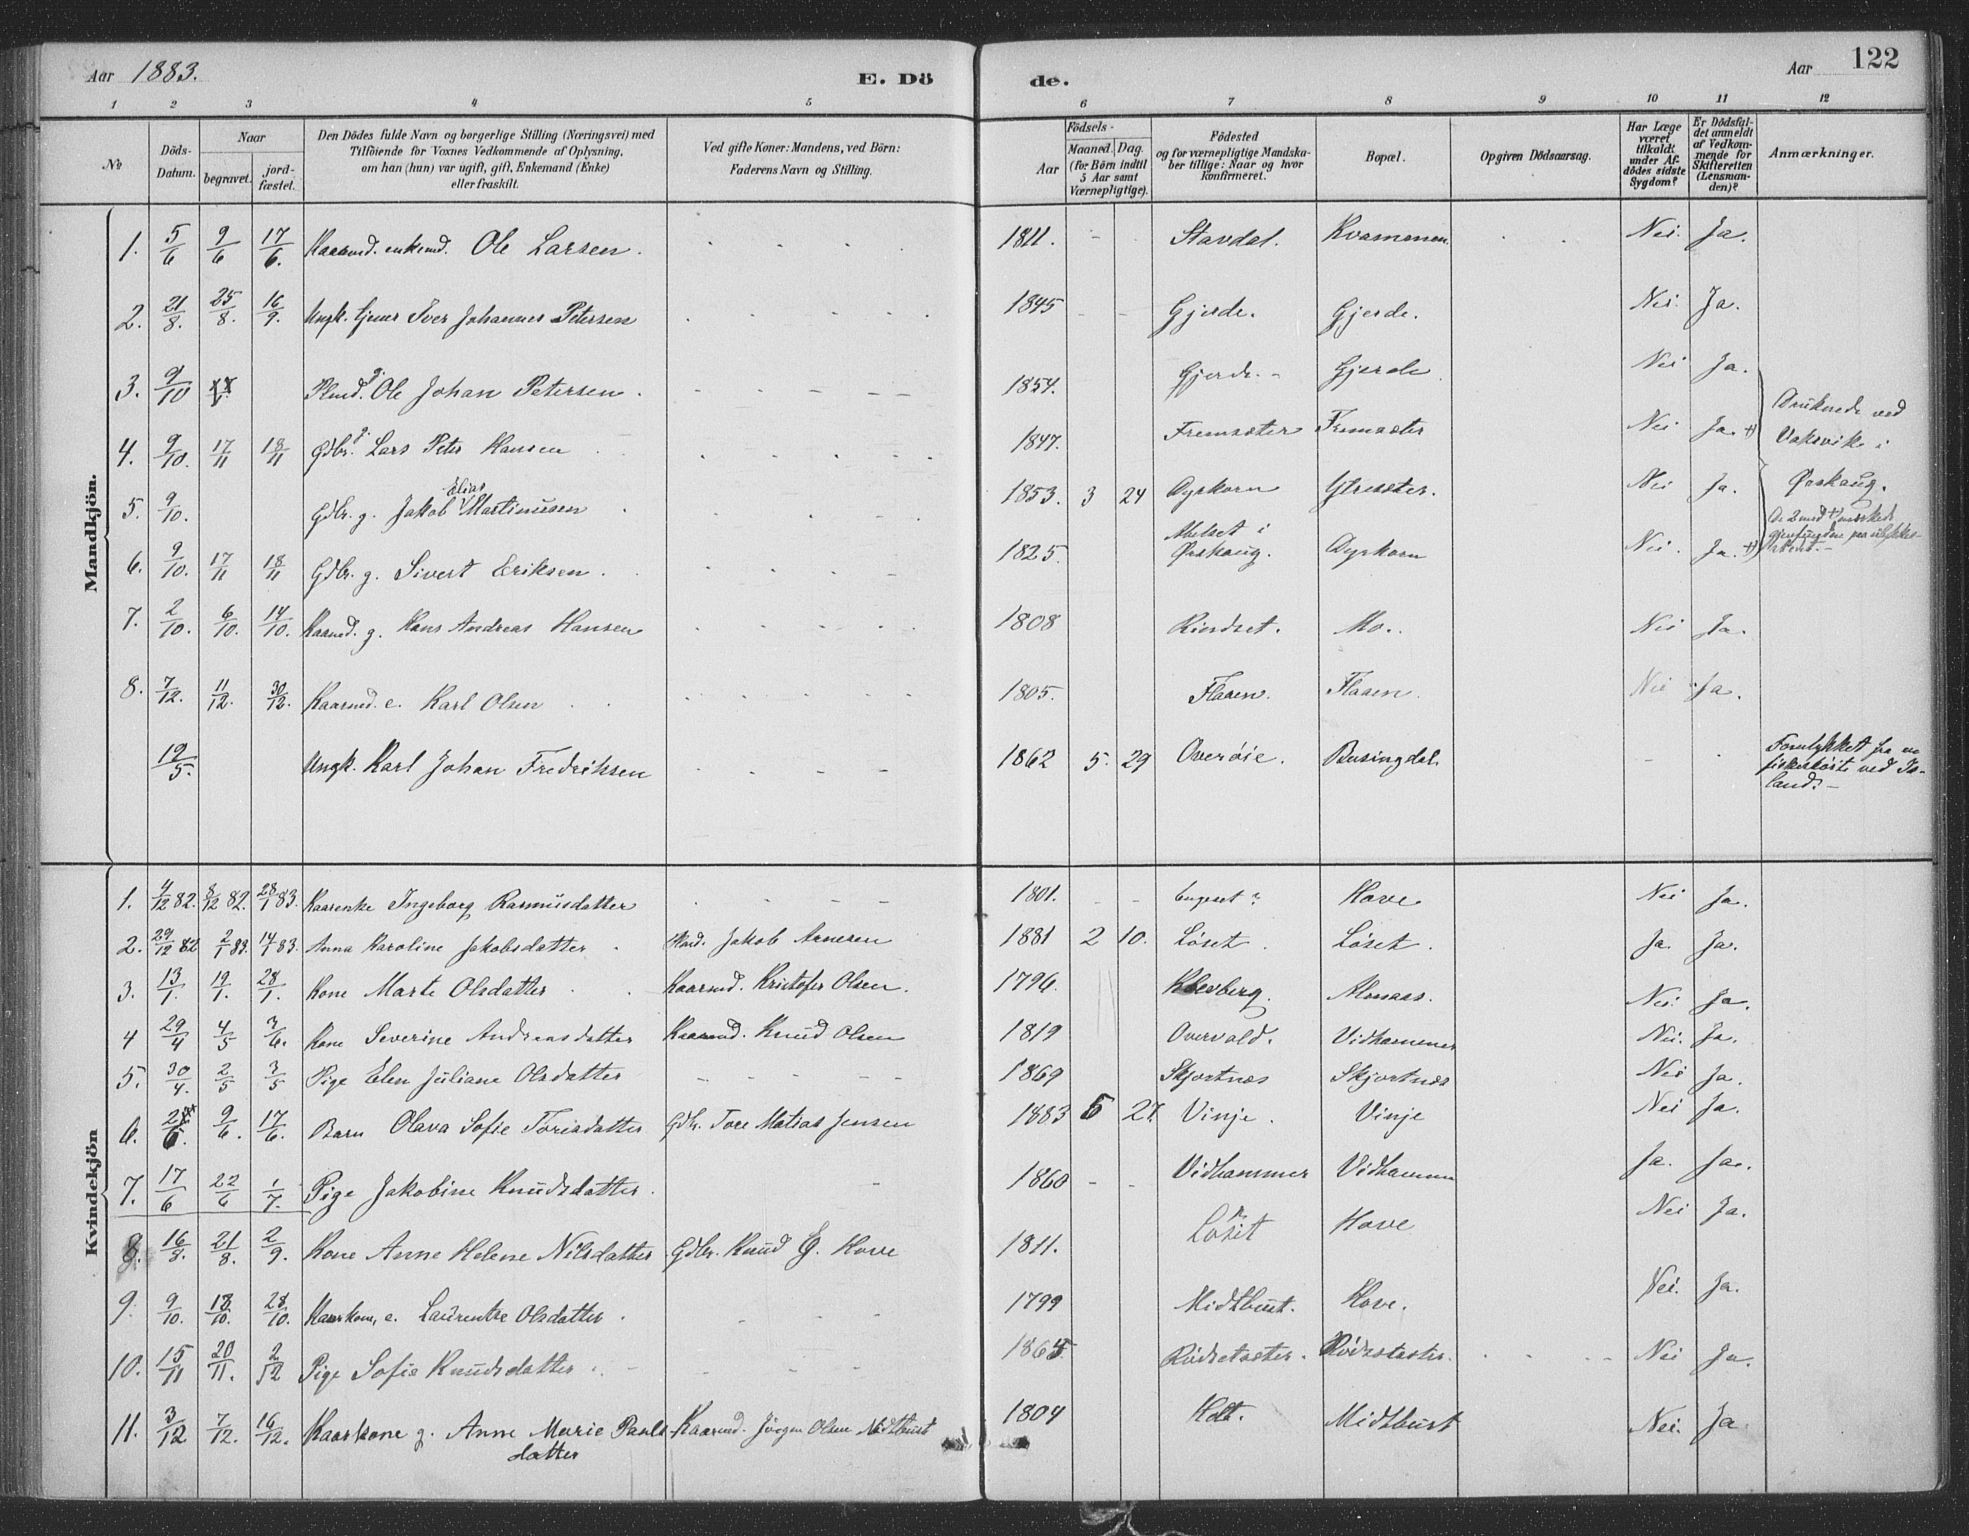 Aar 1883.
E. Dö
de.
Aar
122
1 2 3 4 5 6 7 8 9 10 11 12
No
Döds-
Datum.
Naar
begravet.
jord-
fæstet.
Den Dödes fulde Navn og borgerlige Stilling (Næringsvei) med
Tilföiende for Voxnes Vedkommende af Oplysning,
om han (hun) var ugift, gift, Enkemand (Enke)
eller fraskilt.
Ved gifte Koner: Mandens, ved Börn:
Faderens Navn og Stilling.
Födsels-
Aar
Maaned. Dag.
(for Börn indtil
5 Aar samt
Værnepligtige).
Födested
og for værnepligtige Mandska-
ber tillige: Naar og hvor
konfirmeret.
Bopæl.
Opgiven Dödsaarsag.
Har Læge
været
tilkaldt
under Af-
dödes sidste
Sygdom?
Er Dödsfal-
det anmeldt
af Vedkom-
mende for
Skifteretten
(Lensman-
den)?
Anmærkninger.
Mandkjön.
1. 5/6 9/6 17/6. Kaarmd. enkemd. Ole Larsen. 1811. - - Stavdal. Kvammen. Nei. Ja.
2. 21/8. 25/8. 16/9. Ungk. tjener Iver Johannes Petersen 1845 - - Gjerde. Gjerde. Nei. Ja.
3. 9/10 Plmd. g. Ole Johan Petersen. 1854. Gjerde. - Gjerde Nei Ja.
4. 9/10. 17/11 18/11 Gdbr. g. Lars Peter Hansen 1847. Fremsæter Fremsæter Nei Ja. +)
Druknede ved
Vaksvik i
Ørskaug.
5. 9/10. Gdbr. g. Jakob Elias Martinusen 1853. 3 24 Dyrkorn Ytresæter. Nei Ja.
De 2 med +) mærkede
gjenfunden paa ulykkes-
6. 9/10. 17/11 18/11 Gdbr. g. Sivert Eriksen. 1825. Abelset i Ørskaug. Dyrkorn Nei. Ja. +)
7. 2/10. 6/10. 14/10. Kaarmd. g. Hans Andreas Hansen 1808 Rindset. Mo.. Nei Ja.
8. 7/12. 11/12. 30/12. Kaarmd. e. Karl Olsen 1805. Flaaen. Flaaen. Nei Ja.
19/5. Ungk. Karl Johan Fredriksen 1862 5. 29 Overøie. Busingdal. - -
Forulykket fra en
fiskeskøite ved Is-
land. -
Kvindekjön
1. 4/12 82. 8/12 82. 28/1 83. Kaarenke Ingeborg Rasmusdatter 1801. - - Engeset ? Hove Nei Ja.
2. 29/12 82 2/1 83. 14/1 83. Anna Karoline Jakobsdatter. Plmd. Jakob Arnesen 1881 2 10. Løset. Løset. Ja. Ja.
3. 13/1. 19/1. 28/1 Kone Marte Olsdatter Kaarmd. Kristofer Olsen. 1796. Klevberg. Almaas. Nei. Ja.
4 29/4 4/5 3/6. Kone Severine Andreasdatter Kaarmd. Knud Olsen 1819 Overvold. Vidhammer Nei. Ja.
5. 30/4. 2/5 3/5 Pige Elen Juliane Olsdatter 1869 Skjortnæs Skjortnæs Nei Ja.
6. 9/6. 17/6. Barn Olava Sofie Toresdatter Gdbr. Tore Matias Jensen 1883 5 27. Vinje. Vinje Nei Ja.
7. 17/6 22/6 1/7. Pige Jakobine Knudsdatter. 1860 - - Vidhammer Vidhammer Ja. Ja.
8. 16/8. 21/8. 2/9. Kone Anne Helene Nilsdatter Gdbr. Knud G. Hove 1811. Løset Hove Nei Ja.
9. 9/10. 18/10. 28/10. Kaarkone, e. Laurentse Olsdatter. 1799 Midtbust. Hove. Nei. Ja.
10. 15/11 20/11. 2/12 Pige Sofie Knudsdatter. 1865. Rødsetsæter. Rødsetsæter. Nei Ja.
11. 3/12 7/12. 16/12. Kaarkone g. Anne Marie Pauls
datter Kaarmd. Jørgen Olsen Midtbust 1804 Holt. Midtbust Nei. Ja